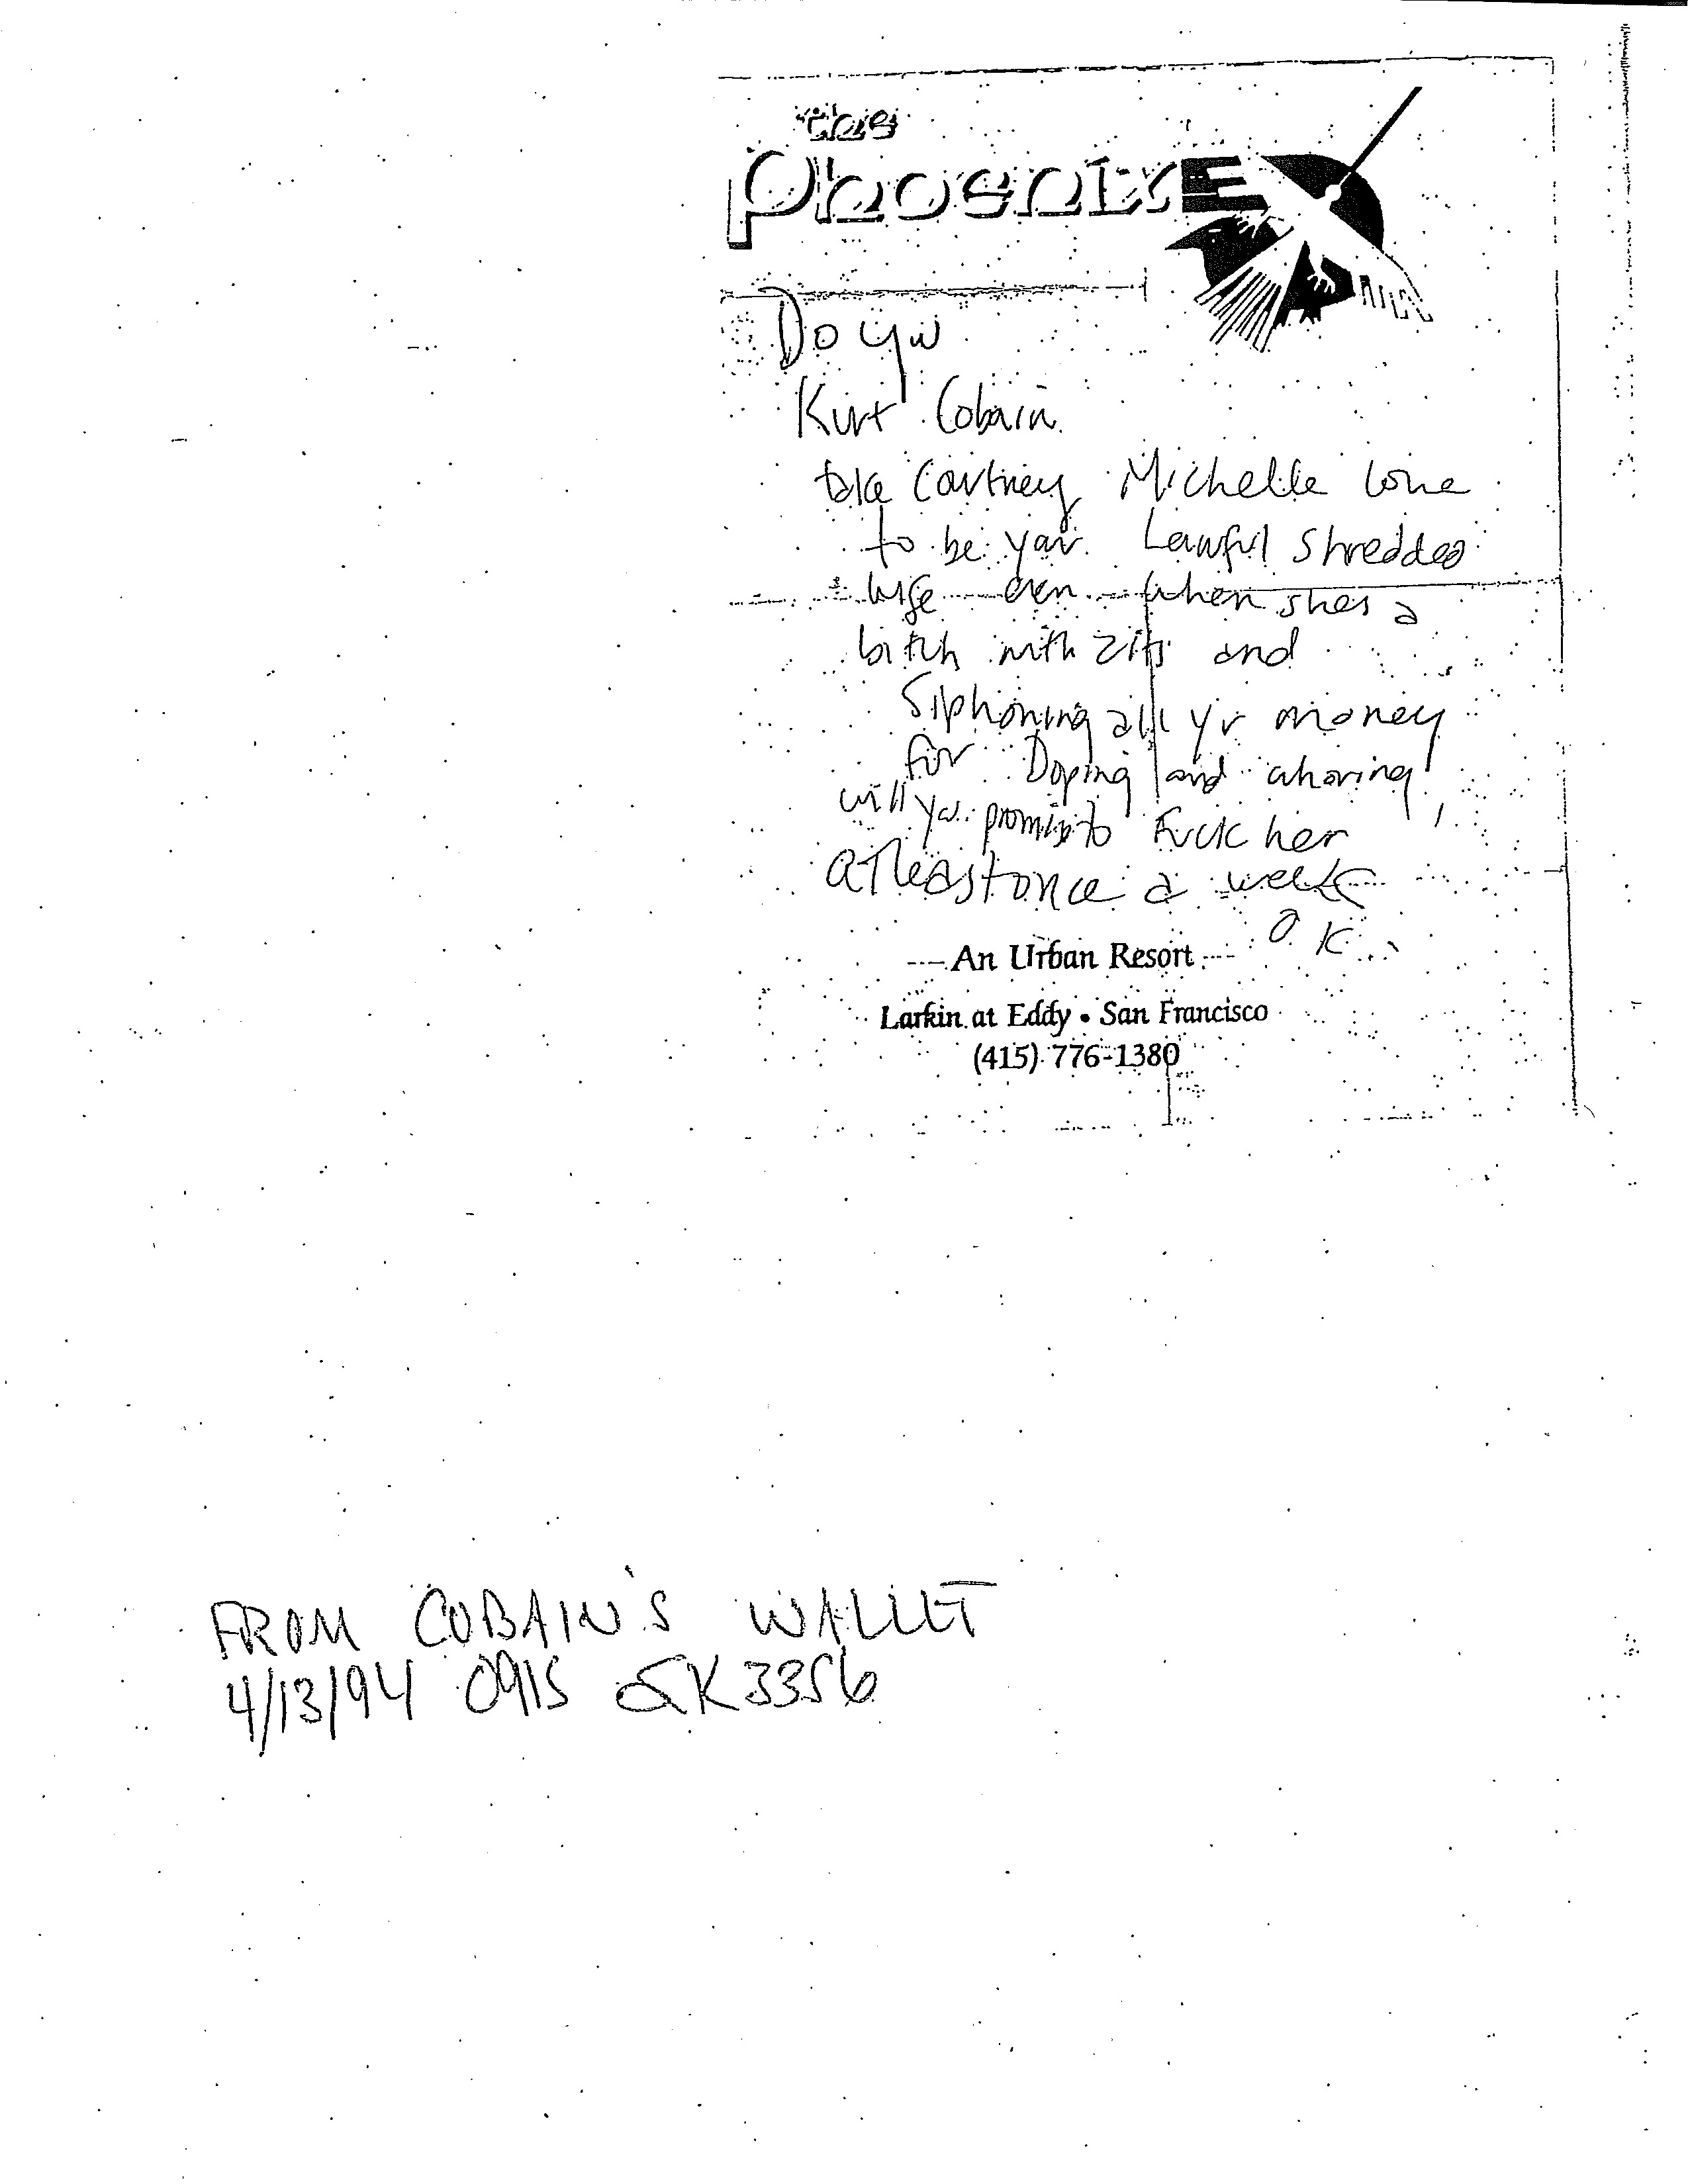 the
Phoenix
Do you
Kurt Cobain
take Courtney Michelle Love
to be your Lawful Shredded
wife even when shes a
bitch with zits and
Siphoning all yr money
for Doping and whoring,
will you promise to Fuck her
atleast once a week
O.K.
An Urban Resort
Larkin at Eddy • San Francisco
(415) 776-1380
FROM COBAIN'S WALLET
4/13/94 0915 3356